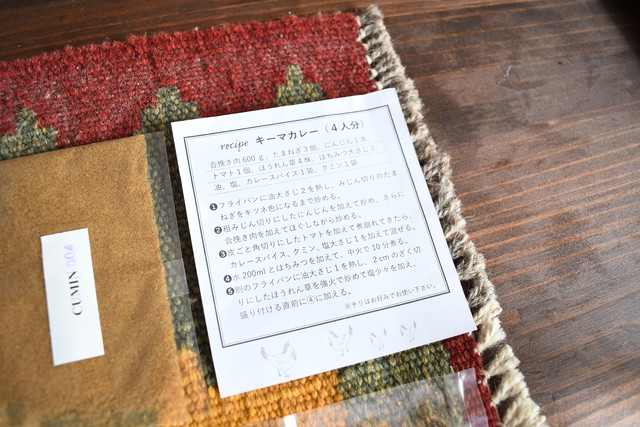 recipe キーマカレー（4人分）
合挽き肉600g、たまねぎ3個、にんじん1本、
トマト1個、ほうれん草4株、はちみつ大さじ2、
油、塩、カレースパイス1袋、クミン1袋
❶フライパンに油大さじ2を熱し、みじん切りのたま
ねぎをキツネ色になるまで炒める。
❷粗みじん切りにしたにんじんを加えて炒め、さらに
合挽き肉を加えてほぐしながら炒める。
❸皮ごと角切りにしたトマトを加えて煮崩れてきたら、
カレースパイス、クミン、塩大さじ1を加えて混ぜる。
❹水200mlとはちみつを加えて、中火で10分煮る。
❺別のフライパンに油大さじ1を熱し、2cmのざく切
りにしたほうれん草を強火で炒めて塩少々を加え、
盛り付ける直前に④に加える。
※チリはお好みでお使い下さい。
CUMIN 004